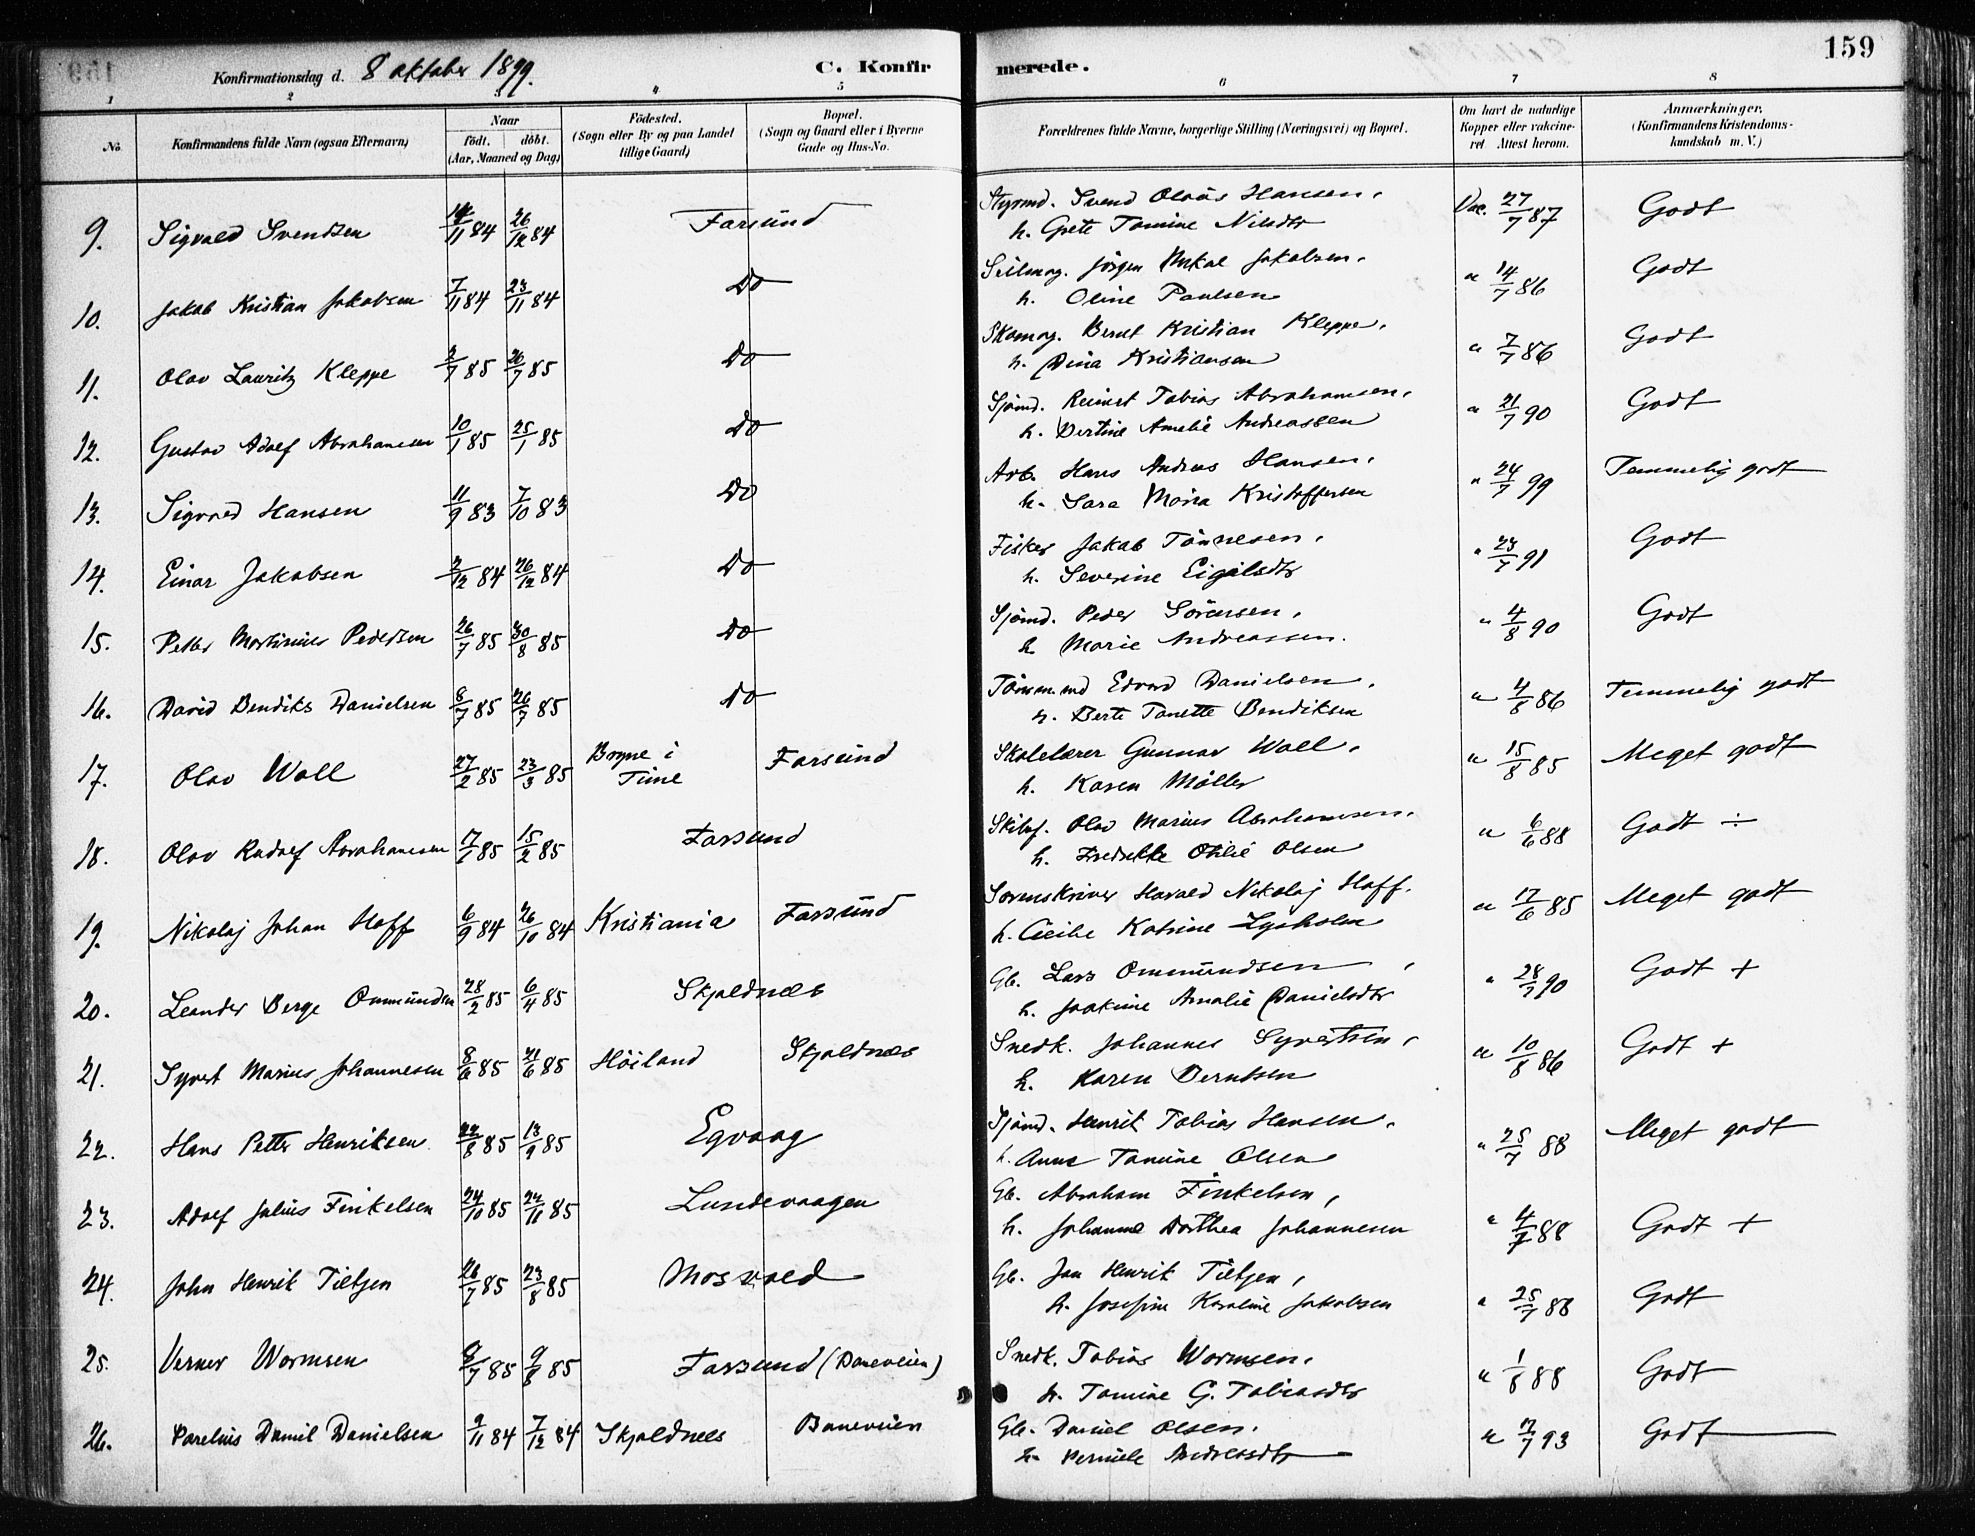 159
Konfirmationsdag d. 8 oktober 1899.
C. Konfirmerede.
1 2 3 4 5 6 7 8
No. Konfirmandens fulde Navn (ogsaa Efternavn) Naar födt. döbt. (Aar, Maaned og Dag) Födested. (Sogn eller By og paa Landet tillige Gaard) Bopæl. (Sogn og Gaard eller i Byerne Gade og Hus-No. Forældrenes fulde Navne, borgerlige Stilling (Næringsvei) og Bopæl. Om havt de naturlige Kopper eller vakcineret Attest herom. Anmærkninger. (Konfirmandens Kristendomskundskab m. V.)
9. Sigvald Svendsen 11 84 26/12 84 Farsund Styrmd. Svend Olaus Hansen, Vac. 27/7 87 Godt
h. Grete Tomine Nilsdtr
10. Jakob Kristian Jakobsen 7/11 84 23/11 84 Do Seilmag. Jörgen Mikal Jakobsen, " 14/7 86 Godt
h. Oline Paulsen
11. Olav Lauritz Kleppe 2/7 85 26/7 85 Do Skomag. Bernt Kristian Kleppe, " 7/7 86 Godt
h. Dina Kristiansen
12. Gustav Adolf Abrahamsen 10/1 85 25/1 85 Do Sjömd. Reinert Tobias Abrahamsen, " 21/7 90 Godt
h. Bertine Amalie Andreassen
13. Sigvald Hansen 11/9 83 7/10 83 Do Arb. Hans Andreas Hansen, " 24/7 99 Temmelig godt
h. Sara Maria Kristoffersen
14. Einar Jakobsen 2/12 84 26/12 84 Do Fisker Jakob Tönnesen, " 23/7 91 Godt
h. Severine Eigilsdtr
15. Petter Martinius Pedersen 26/7 85 30/8 85 Do Sjömd. Peder Sörensen, " 4/8 90 Godt
h. Marie Andreassen.
16. David Bendiks Danielsen 8/7 85 26/7 85 Do Tömm.md Edvard Danielsen, " 4/8 86 Temmelig godt
h. Berte Tonette Bendiksen
17. Olav Woll 27/2 85 23/3 85 Bryne i Time Farsund Skolelærer Gunnar Woll, " 15/8 85 Meget godt
h. Karen Möller
18. Olav Rudolf Abrahamsen 17/1 85 15/2 85 Farsund Skibsf. Olav Marius Abrahamsen, " 6/6 88 Godt ÷
h. Fredrikke Otilie Olsen
19. Nikolaj Johan Hoff 6/9 84 26/10 84 Kristiania Farsund Sorenskriver Harald Nikolaj Hoff, " 17/6 85 Meget godt
h. Cecilie Katrine Lysholm
20. Leander Berge Ommundsen 28/2 85 6/4 85 Skjoldnæs Gb. Lars Ommundsen, " 28/7 90 Godt +
h. Joakime Amalie Danielsdtr
21. Syvert Marius Johannesen 8/6 85 21/6 85 Höiland Skjoldnæs Snedk. Johannes Syvertsen, " 10/8 86 Godt +
h. Karen Berntsen
22. Hans Petter Henriksen 22/8 85 13/9 85 Eqvaag Sjömd. Henrik Tobias Hansen, " 25/7 88 Meget godt
h. Anne Tomine Olsen
23. Adolf Julius Finkelsen 24/10 85 22/11 85 Lundevaagen Gb. Abraham Finkelsen, " 4/7 88 Godt +
h. Johanne Dorthea Johannesen
24. John Henrik Tietjen 26/7 85 23/8 85 Mosvold Gb. Jan Henrik Tietjen, " 25/7 88 Godt
h. Josefine Karoline Jakobsen
25. Verner Wormsen 8/7 85 9/8 85 Farsund (Baneveien) Snedk. Tobias Wormsen, " 1/8 88 Godt
h. Tomine G. Tobiasdtr
26. Parelius Daniel Danielsen 9/11 84 7/12 84 Skjoldnes Baneveien Gb. Daniel Olsen, " 12/7 93 Godt
h. Pernille Andreasdtr